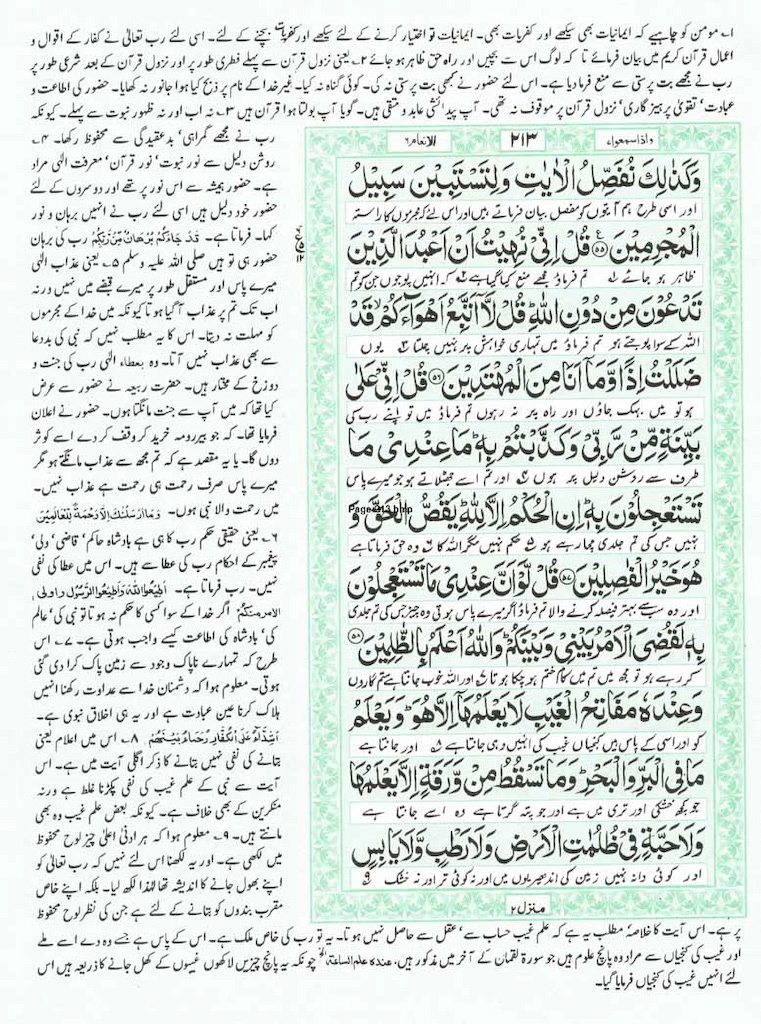 ۱۔ مومن کو چاہیے کہ ایمانیات بھی سیکھے اور کفریات بھی۔ ایمانیات تو اختیار کرنے کے لئے سیکھے اور کفریات بچنے کے لئے۔ اسی لئے رب تعالیٰ نے کفار کے اقوال و
اعمال قرآن کریم میں بیان فرمائے تا کہ لوگ اس سے بچیں اور راہ حق ظاہر ہو جائے ۲۔ یعنی نزول قرآن سے پہلے فطری طور پر اور نزول قرآن کے بعد شرعی طور پر
رب نے مجھے بت پرستی سے منع فرما دیا ہے۔ اس لئے حضور نے کبھی بت پرستی نہ کی۔ کوئی گناہ نہ کیا۔ غیر خدا کے نام پر ذبح کیا ہوا جانور نہ کھایا۔ حضور کی اطاعت و
عبادت' تقویٰ پرہیز گاری' نزول قرآن پر موقوف نہ تھی۔ آپ پیدائشی عابد و متقی ہیں۔ گویا آپ بولتا ہوا قرآن ہیں ۳۔ نہ اب اور نہ ظہور نبوت سے پہلے۔ کیونکہ
واذاسمعوا۷ ۲۱۳ الانعام۶
وَكَذٰلِكَ نُفَصِّلُ الْاٰيٰتِ وَلِتَسْتَبِيْنَ سَبِيْلُ
اور اسی طرح ہم آیتوں کو مفصل بیان فرماتے ہیں اور اس لئے کہ مجرموں کا راستہ
الْمُجْرِمِيْنَ ﴿۵۵﴾ قُلْ اِنِّيْ نُهِيْتُ اَنْ اَعْبُدَ الَّذِيْنَ
ظاہر ہو جائے ۱ تم فرماؤ مجھے منع کیا گیا ہے ۲ کہ انہیں پوجوں جن کو تم
تَدْعُوْنَ مِنْ دُوْنِ اللّٰهِ ؕ قُلْ لَّاۤ اَتَّبِعُ اَهْوَآءَكُمْ ۙ قَدْ
اللہ کے سوا پوجتے ہو تم فرماؤ میں تمہاری خواہش پر نہیں چلتا ۳ یوں
ضَلَلْتُ اِذًا وَّمَاۤ اَنَا مِنَ الْمُهْتَدِيْنَ ﴿۵۶﴾ قُلْ اِنِّيْ عَلٰى
ہو تو میں بہک جاؤں اور راہ پر نہ رہوں تم فرماؤ میں تو اپنے رب کی
بَيِّنَةٍ مِّنْ رَّبِّيْ وَكَذَّبْتُمْ بِهٖ ؕ مَا عِنْدِيْ مَا
طرف سے روشن دلیل پر ہوں ۴ اور تم اسے جھٹلاتے ہو میرے پاس
تَسْتَعْجِلُوْنَ بِهٖ ؕ اِنِ الْحُكْمُ اِلَّا لِلّٰهِ ؕ يَقُصُّ الْحَقَّ وَ
نہیں جس کی تم جلدی مچا رہے ہو ۵ حکم نہیں مگر اللہ کا ۶ وہ حق فرماتا ہے
هُوَ خَيْرُ الْفٰصِلِيْنَ ﴿۵۷﴾ قُلْ لَّوْ اَنَّ عِنْدِيْ مَا تَسْتَعْجِلُوْنَ
اور وہ سب سے بہتر فیصلہ کرنے والا تم فرماؤ اگر میرے پاس ہوتی وہ چیز جس کی تم جلدی
بِهٖ لَقُضِيَ الْاَمْرُ بَيْنِيْ وَبَيْنَكُمْ ؕ وَاللّٰهُ اَعْلَمُ بِالظّٰلِمِيْنَ ﴿۵۸﴾
کر رہے ہو تو مجھ میں تم میں کام ختم ہو چکا ہوتا ۷ اور اللہ خوب جانتا ہے ستم گاروں
وَعِنْدَهٗ مَفَاتِحُ الْغَيْبِ لَا يَعْلَمُهَاۤ اِلَّا هُوَ ؕ وَيَعْلَمُ
کو اور اسی کے پاس ہیں کنجیاں غیب کی انہیں وہی جانتا ہے ۸ اور جانتا ہے
مَا فِي الْبَرِّ وَالْبَحْرِ ؕ وَمَا تَسْقُطُ مِنْ وَّرَقَةٍ اِلَّا يَعْلَمُهَا
جو کچھ خشکی اور تری میں ہے اور جو پتہ گرتا ہے وہ اسے جانتا ہے
وَلَا حَبَّةٍ فِيْ ظُلُمٰتِ الْاَرْضِ وَلَا رَطْبٍ وَّلَا يَابِسٍ
اور کوئی دانہ نہیں زمین کی اندھیریوں میں اور نہ کوئی تر اور نہ خشک ۹
منزل ۲
Page213.bmp
رب نے مجھے گمراہی' بدعقیدگی سے محفوظ رکھا۔ ۴۔
روشن دلیل سے نور نبوت' نور قرآن' معرفت الٰہی مراد
ہے۔ حضور ہمیشہ سے اس نور پر تھے اور دوسروں کے لئے
حضور خود دلیل ہیں اسی لئے رب نے انہیں برہان و نور
کہا۔ فرماتا ہے۔ قَدْ جَاءَكُمْ بُرْهَانٌ مِّنْ رَّبِّكُمْ رب کی برہان
حضور ہی تو ہیں صلی اللہ علیہ وسلم ۵۔ یعنی عذاب الٰہی
میرے پاس اور مستقل طور پر میرے قبضے میں نہیں ورنہ
اب تک تم پر عذاب آ گیا ہوتا کیونکہ میں خدا کے مجرموں
کو مہلت نہ دیتا۔ اس کا یہ مطلب نہیں کہ نبی کی بددعا
سے بھی عذاب نہیں آتا۔ وہ بعطاء الٰہی رب کی جنت و
دوزخ کے مختار ہیں۔ حضرت ربیعہ نے حضور سے عرض
کیا تھا کہ میں آپ سے جنت مانگتا ہوں۔ حضور نے اعلان
فرمایا تھا۔ کہ جو بیر رومہ خرید کر وقف کر دے اسے کوثر
دوں گا۔ یا یہ مقصد ہے کہ تم مجھ سے عذاب مانگتے ہو مگر
میرے پاس صرف رحمت ہی رحمت ہے عذاب نہیں۔
میں رحمت والا نبی ہوں۔ وَمَا اَرْسَلْنٰكَ اِلَّا رَحْمَةً لِّلْعَالَمِيْنَ
۶۔ یعنی حقیقی حکم رب کا ہی ہے بادشاہ حاکم' قاضی' ولی'
پیغمبر کے احکام رب کی عطا سے ہیں۔ اس میں عطا کی نفی
نہیں۔ رب فرماتا ہے۔ اَطِيْعُوا اللهَ وَاَطِيْعُوا الرَّسُوْلَ وَاُولِى
الْاَمْرِ مِنْكُمْ اگر خدا کے سوا کسی کا حکم نہ ہو تا تو نبی کی' عالم
کی' بادشاہ کی اطاعت کیسے واجب ہوتی ہے۔ ۷۔ اس
طرح کہ تمہارے ناپاک وجود سے زمین پاک کرا دی گئی
ہوتی۔ معلوم ہوا کہ دشمنان خدا سے عداوت رکھنا انہیں
ہلاک کرنا عین عبادت ہے اور یہ ہی اخلاق نبوی ہے۔
اَشِدَّآءُ عَلَى الْكُفَّارِ رُحَمَآءُ بَيْنَهُمْ ۸۔ اس میں اعلام یعنی
بتانے کی نفی نہیں بتانے کا ذکر اگلی آیت میں ہے۔ اس
آیت سے نبی کے علم غیب کی نفی پکڑنا غلط ہے ورنہ
منکرین کے بھی خلاف ہے۔ کیونکہ بعض علم غیب وہ بھی
مانتے ہیں۔ ۹۔ معلوم ہوا کہ ہر ادنیٰ اعلیٰ چیز لوح محفوظ
میں لکھی ہے۔ اور یہ لکھنا اس لئے نہیں کہ رب تعالیٰ کو
اپنے بھول جانے کا اندیشہ تھا لہٰذا لکھ لیا۔ بلکہ اپنے خاص
مقرب بندوں کو بتانے کے لئے ہے جن کی نظر لوح محفوظ
پر ہے۔ اس آیت کا خلاصہ مطلب یہ ہے کہ علم غیب حساب سے' عقل سے حاصل نہیں ہوتا۔ یہ تو رب کی خاص ملک ہے۔ اس کے پاس ہے جسے وہ دے اسے ملے
اور غیب کی کنجیاں سے مراد وہ پانچ علوم ہیں جو سورۃ لقمان کے آخر میں مذکور ہیں، عندہ علم الساعۃ الخ چونکہ یہ پانچ چیزیں لاکھوں غیبوں کے کھل جانے کا ذریعہ ہیں اس
لئے انہیں غیب کی کنجیاں فرمایا گیا۔